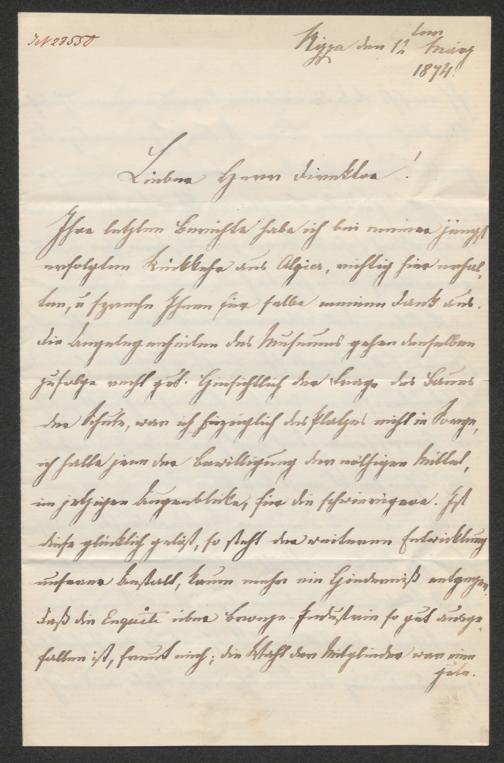 IN 23550
Nizza den 12ten März
1874.
Lieber Herr Direktor!
Ihre letzten Berichte habe ich bei meiner jüngst
erfolgten Rückkehr aus Algier, richtig hier erhal-
ten, u spreche Ihnen für selbe meinen Dank aus.
Die Angelegenheiten des Museums gehen denselben
zufolge recht gut. Hinsichtlich der Frage des Baues
der Schule, war ich bezüglich des Platzes nicht in Sorge,
ich halte jene der Bewilligung der nöthigen Mittel,
im jetzigen Augenblicke, für die schwierigere. Ist
diese glücklich gelöst, so steht der weiteren Entwicklung
unserer Anstalt, kaum mehr ein Hinderniß entgegen.
Daß die Enquête über Bronze-Industrie so gut ausge-
fallen ist, freut mich; die Wahl der Mitglieder war eine
gute.